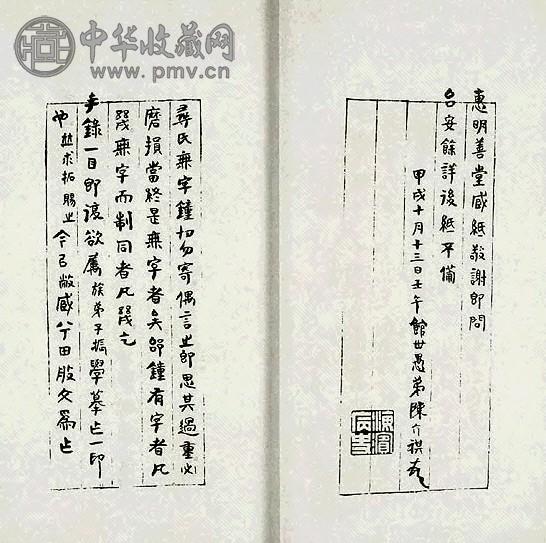 中华收藏网
www.pmv.cn
惠明善堂紙敬謝即問
台安餘詳後紙不備
甲戌十月十三日壬午館世愚弟陳介祺
尋氏無字鐘切勿寄偶言之即思其過重必
磨損當終是無字者矣郘鐘有字者凡
幾無字而制同者凡幾乞
手錄一目即欲屬族弟子振學摹之一印
也求拓賜之今敝田文為